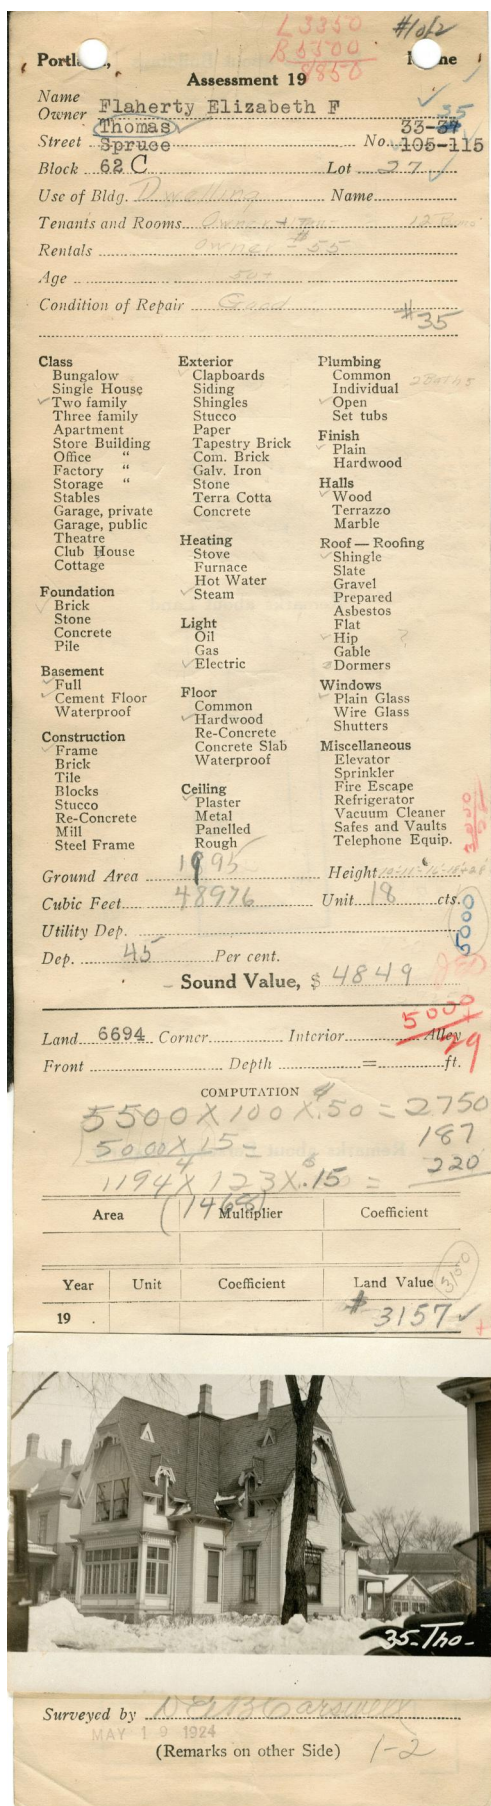 L 3350
B 5500
8850
#1 of 2
Portland, Maine
Assessment 19
Name
Owner Flaherty Elizabeth F
Thomas 33-37 35
Street Spruce No. 105-115
Block 62 C Lot 27
Use of Bldg. Dwelling Name
Tenants and Rooms Owner + Ten 12 Rooms
Rentals Owner - $55
Age 50+
Condition of Repair Good
#35
Class
Bungalow
Single House
✓ Two family
Three family
Apartment
Store Building
Office "
Factory "
Storage "
Stables
Garage, private
Garage, public
Theatre
Club House
Cottage
Foundation
✓ Brick
Stone
Concrete
Pile
Basement
✓ Full
✓ Cement Floor
Waterproof
Construction
✓ Frame
Brick
Tile
Blocks
Stucco
Re-Concrete
Mill
Steel Frame
Exterior
✓ Clapboards
Siding
Shingles
Stucco
Paper
Tapestry Brick
Com. Brick
Galv. Iron
Stone
Terra Cotta
Concrete
Heating
Stove
Furnace
Hot Water
✓ Steam
Light
Oil
Gas
✓ Electric
Floor
Common
✓ Hardwood
Re-Concrete
Concrete Slab
Waterproof
Ceiling
✓ Plaster
Metal
Panelled
Rough
Plumbing
Common 2 Baths
Individual
✓ Open
Set tubs
Finish
✓ Plain
Hardwood
Halls
✓ Wood
Terrazzo
Marble
Roof — Roofing
✓ Shingle
Slate
Gravel
Prepared
Asbestos
Flat
✓ Hip ?
Gable
Dormers
Windows
✓ Plain Glass
Wire Glass
Shutters
Miscellaneous
Elevator
Sprinkler
Fire Escape
Refrigerator
Vacuum Cleaner
Safes and Vaults
Telephone Equip.
Ground Area 1995 Height
Cubic Feet 48976 Unit 18 cts.
Utility Dep. 5000
Dep. 45 Per cent.
Sound Value, $ 4849
5000
29
Land 6694 Corner Interior Alley
Front Depth = ft.
COMPUTATION
5500 X 100 X .50 = 2750
5000 X 15 = 187
1194 X 123 X .15 = 220
(1468)
Area Multiplier Coefficient
Year Unit Coefficient Land Value 3100
19 $ 3157 ✓
35-Tho-
Surveyed by
MAY 19 1924
(Remarks on other Side) 1-2